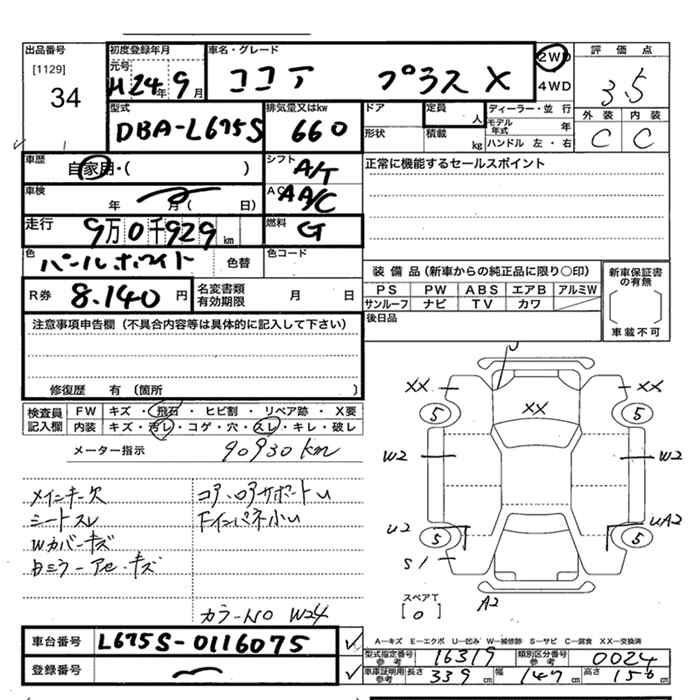 出品番号
[1129]
34
初度登録年月
元号
H24年 9月
車名・グレード
ココア プラス X
2WD
4WD
評価点
3.5
外装 内装
C C
型式
DBA-L675S
排気量又はkw
660
ドア
形状
定員
人
積載
kg
ディーラー・並行
モデル年式 年
ハンドル 左・右
車歴
自家用・( )
シフト
A/T
正常に機能するセールスポイント
車検
年 月( 日)
AC
AA/C
走行
9万0千929km
燃料
G
色
パールホワイト
色替
色コード
R券
8.140円
名変書類
有効期限
月 日
装備品(新車からの純正品に限り○印)
PS PW ABS エアB アルミW
サンルーフ ナビ TV カワ
後日品
新車保証書
の有無
車載不可
注意事項申告欄(不具合内容等は具体的に記入して下さい)
修復歴 有(箇所 )
検査員
記入欄
FW キズ・飛石・ヒビ割・リペア跡・X要
内装 キズ・汚レ・コゲ・穴・スレ・キレ・破レ
メーター指示 90930km
メインキー欠
シートスレ
Wカバーキズ
コア、ロアサポートU
カラーNO W24
XX XX
XX
5 5
W2 W2
U2 UA2
5 5
S1
A2
スペアT
[0]
車台番号 L675S-0116075
登録番号
A―キズ E―エクボ U―凹み W―補修跡 S―サビ C―腐食 XX―交換済
型式指定番号
参考
16319
類別区分番号
参考
0024
車庫証明用
参考
長さ 339cm 幅 147cm 高さ 156cm